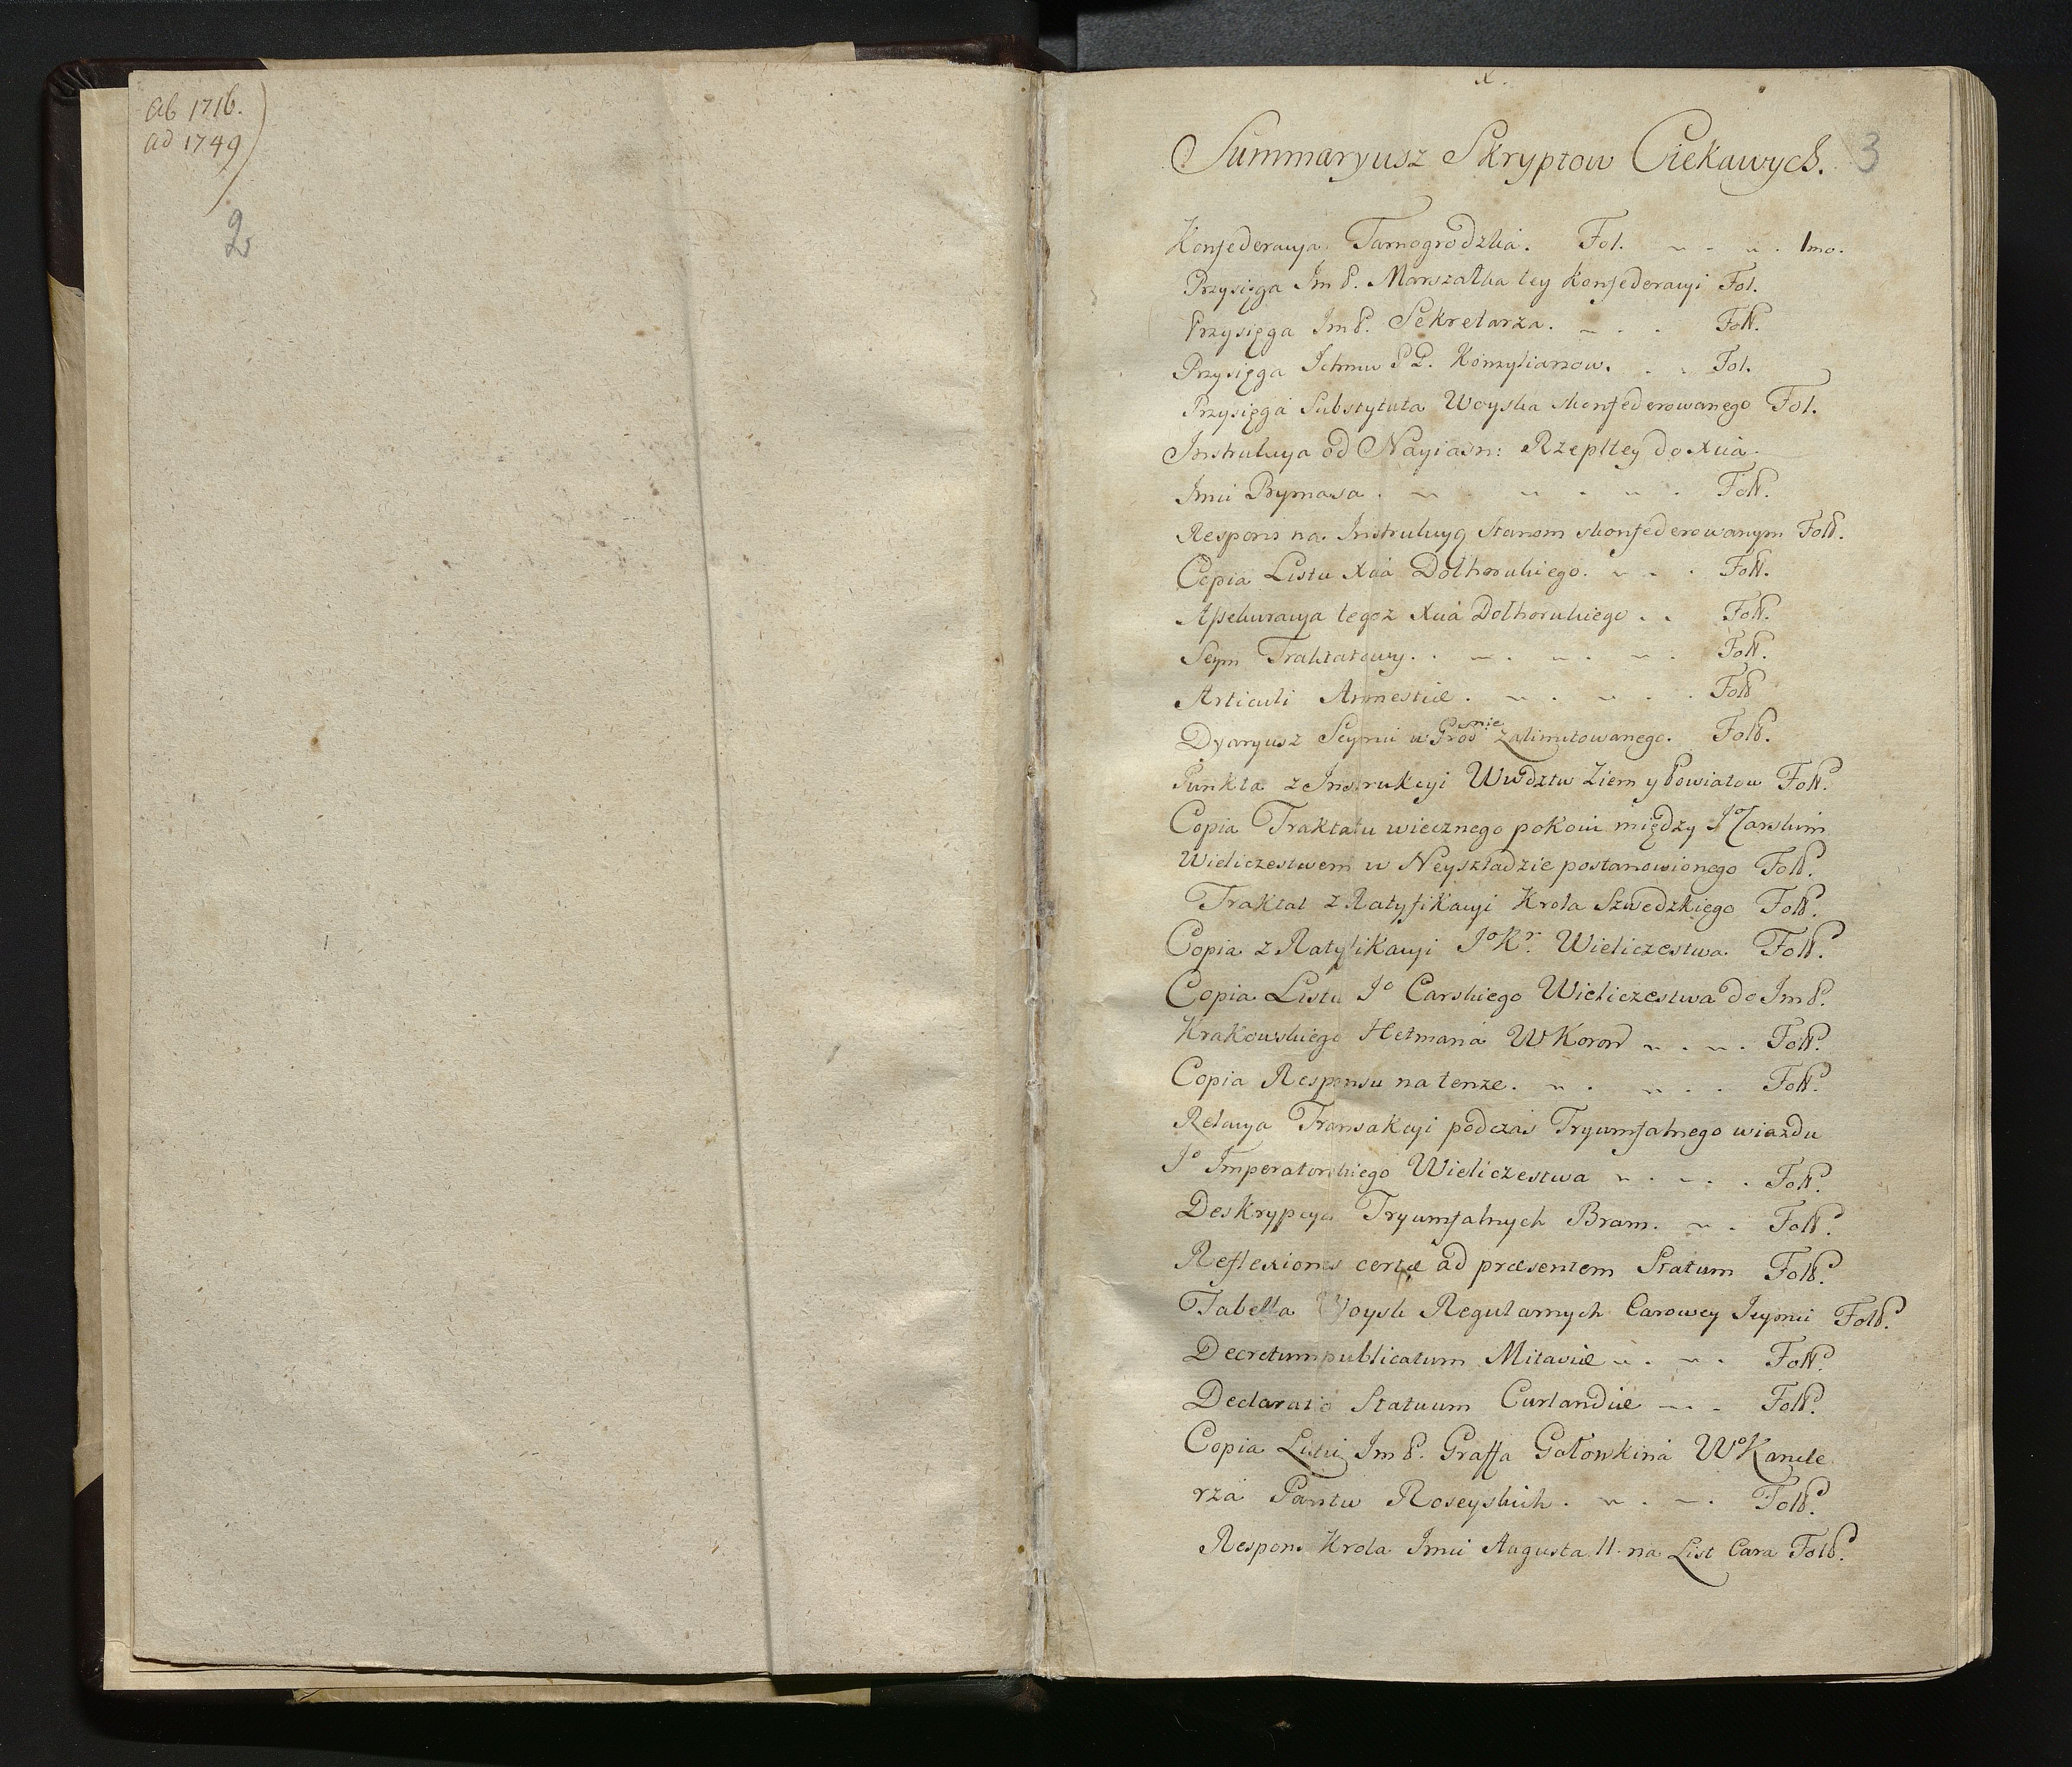 ab 1716.
ad 1749
2
x.
Summaryusz Skryptow Ciekawych. 3
Konfederacya Tarnogrodzka. Fol. 1mo.
Przysięga Im P. Marszałka tey Konfederacyi Fol.
Przysięga Im P. Sekretarza. Fol.
Przysięga Ichmw PP. Konzyliarzow. Fol.
Przysięga Substytuta Woyska skonfederowanego Fol.
Instrukcya od Nayiasn: Rzepltey do Xcia
Imci Fol.
Respons na Instrukcyą Stanom skonfederowanym Fol.
Copia Listu Xcia Dolhorukiego. Fol.
Assekuracya tegoz Xcia Dolhorukiego Fol.
Seym Traktatowy. Fol.
Articuli Amnestiæ. Fol.
Dyaryusz Seymu w Grodnie zalimitowanego. Fol.
Punkta z Instrukcyi Wwdztw Ziem y Powiatow Fol.
Copia Traktatu wiecznego pokoiu między Jo Carskim
Wieliczestwem w Neysztadzie postanowionego Fol.
Traktat z Ratyfikacyi Krola Szwedzkiego Fol.
Copia z Ratyfikacyi Jo Kr. Wieliczestwa Fol.
Copia Listu Jo Carskiego Wieliczestwa do Im P.
Krakowskiego Hetmana W Koron Fol.
Copia Responsu na tenze. Fol.
Relacya Transakcyi podczas Tryumfalnego wiazdu
Jo Imperatorskiego Wieliczestwa Fol.
Deskrypcya Tryumfalnych Bram. Fol.
Reflexiones certæ ad præsentem Statum Fol.
Tabella Woysk Regularnych Carowey Jeymci Fol.
Decretum publicatum Mitaviæ Fol.
Declaratio Statuum Curlandiæ Fol.
Copia Listu Im P. Graffa Gołowkina Wo Kancle
rza Panstw Roseyskich. Fol.
Respons Krola Imci Augusta II. na List Cara Fol.